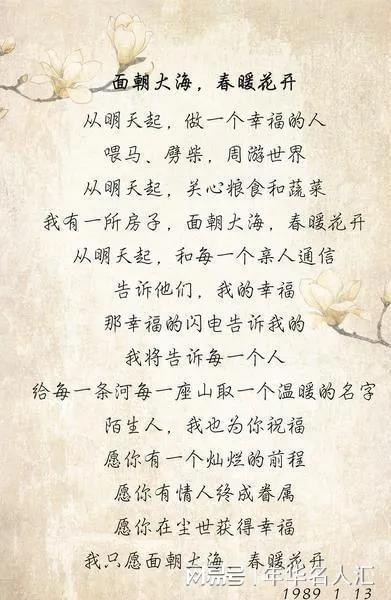 面朝大海，春暖花开
从明天起，做一个幸福的人
喂马、劈柴，周游世界
从明天起，关心粮食和蔬菜
我有一所房子，面朝大海，春暖花开
从明天起，和每一个亲人通信
告诉他们，我的幸福
那幸福的闪电告诉我的
我将告诉每一个人
给每一条河每一座山取一个温暖的名字
陌生人，我也为你祝福
愿你有一个灿烂的前程
愿你有情人终成眷属
愿你在尘世获得幸福
我只愿面朝大海，春暖花开
搜狐号@年华名人汇
1989 1 13